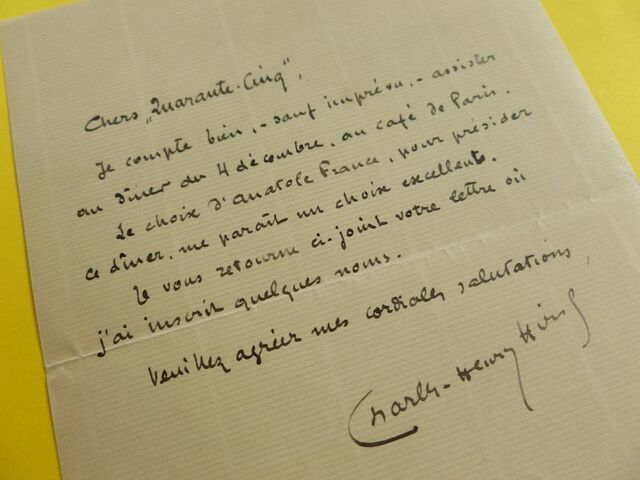 Chers „Quarante-Cinq",
Je compte bien, - sauf imprévu, - assister
au dîner du 4 décembre, au café de Paris.
Le choix d'Anatole France, pour présider
ce dîner, me paraît un choix excellent.
Je vous retourne ci-joint votre lettre où
j'ai inscrit quelques noms.
Veuillez agréer mes cordiales salutations,
Charles-Henry Hirsch